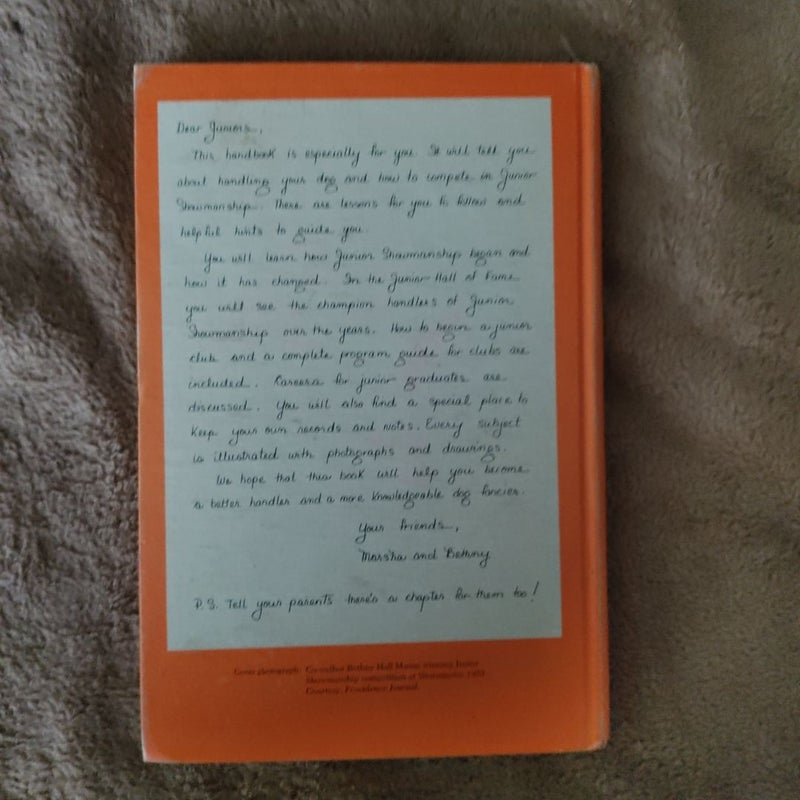 Dear Juniors,
This handbook is especially for you. It will tell you
about handling your dog and how to compete in Junior
Showmanship. There are lessons for you to follow and
helpful hints to guide you.
You will learn how Junior Showmanship began and
how it has changed. In the Junior Hall of Fame
you will see the champion handlers of Junior
Showmanship over the years. How to begin a junior
club and a complete program guide for clubs are
included. Careers for junior graduates are
discussed. You will also find a special place to
keep your own records and notes. Every subject
is illustrated with photographs and drawings.
We hope that this book will help you become
a better handler and a more knowledgeable dog fancier.
Your friends,
Marsha and Bethny
P.S. Tell your parents there's a chapter for them too!
Cover photograph: Co-author Bethny Hall Mason winning Junior
Showmanship competition at Westminster
Courtesy, Providence Journal.